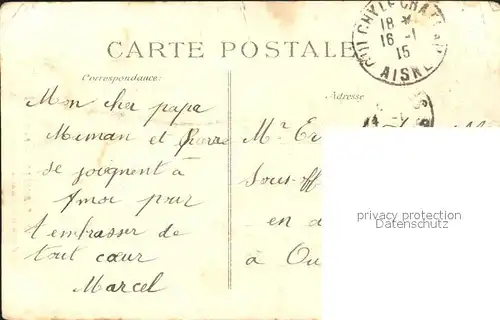 OULCHY LE CHATEAU
18 *
16 -1
15
AISNE
CARTE POSTALE
Correspondance:
Adresse
Mon cher papa
Maman et Pierre
se joignent à
moi pour
t'embrasser de
tout cœur
Marcel
Mr
Sous-off
en
à Ou
privacy protection
www.oldthing.de